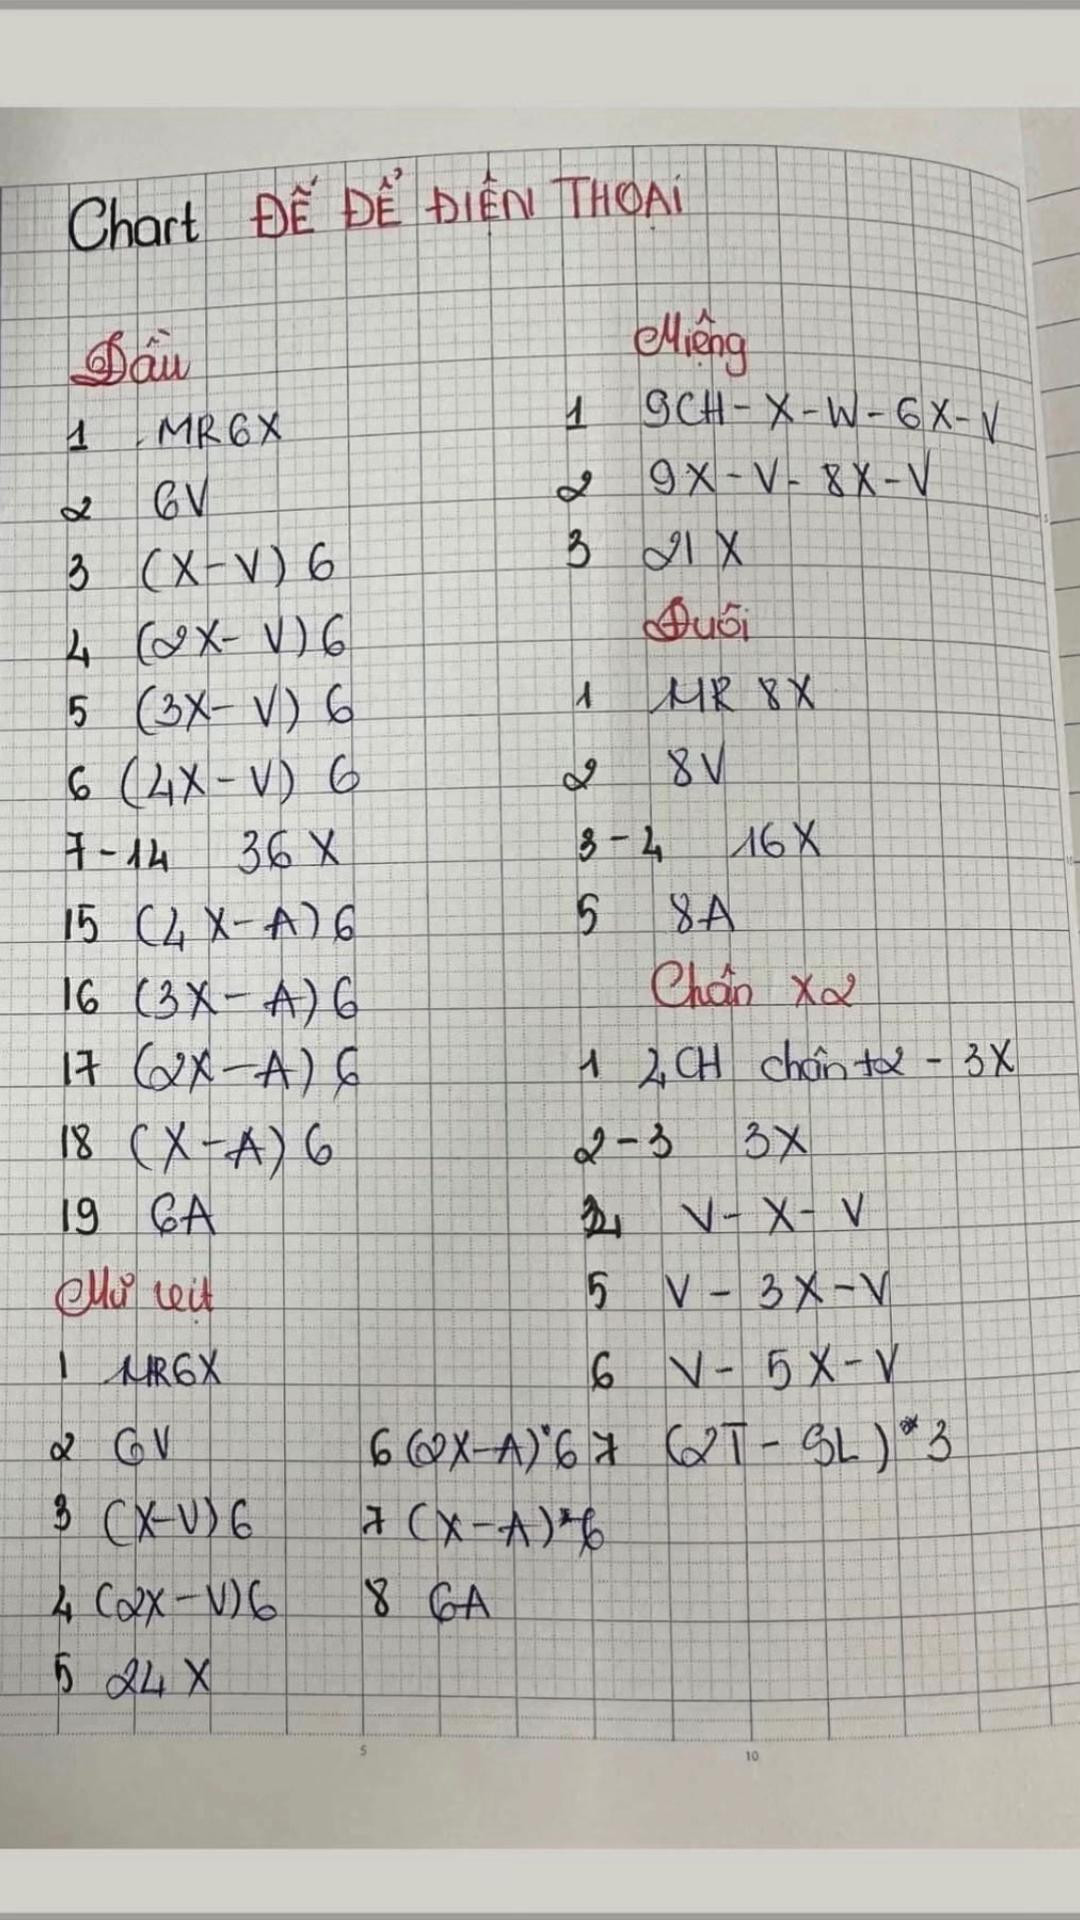 Chart ĐẾ ĐỂ ĐIỆN THOẠI
Đầu
1 MR6X
2 6V
3 (X-V) 6
4 (2X-V) 6
5 (3X-V) 6
6 (4X-V) 6
7-14 36X
15 (4X-A) 6
16 (3X-A) 6
17 (2X-A) 6
18 (X-A) 6
19 6A
Mũ vịt
1 MR6X
2 6V
3 (X-V) 6
4 (2X-V) 6
5 24X
6 (2X-A)*6
7 (X-A)*6
8 6A
Miệng
1 9CH-X-W-6X-V
2 9X-V-8X-V
3 21X
Đuôi
1 MR 8X
2 8V
3-4 16X
5 8A
Chân X2
1 4CH chân+2 - 3X
2-3 3X
4 V-X-V
5 V-3X-V
6 V-5X-V
7 (2T-SL)*3
5
10